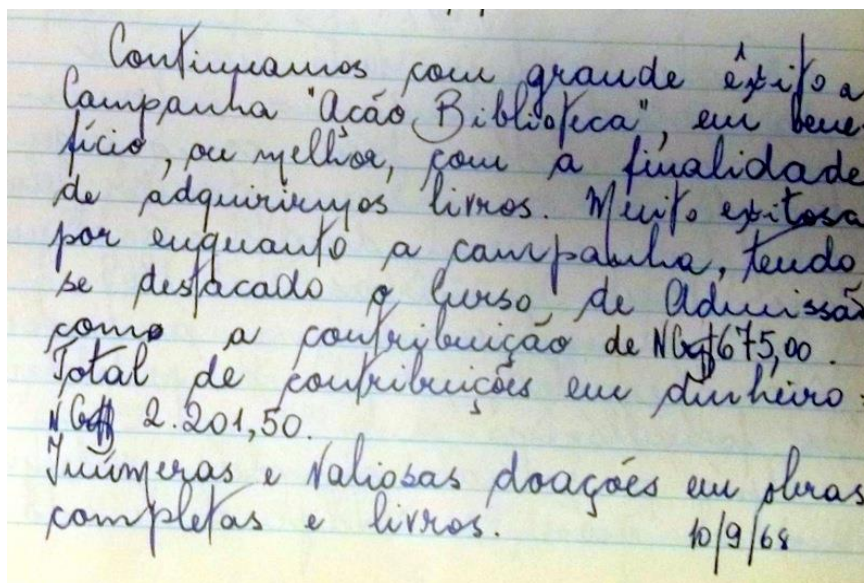 Continuamos com grande êxito a
Campanha "Acão Biblioteca", em bene
fício, ou melhor, com a finalidade
de adquirirmos livros. Muito exitosa
por enquanto a campanha, tendo
se destacado o Curso de Admissão
como a contribuição de NCr$675,00.
Total de contribuições em dinheiro:
NCr$ 2.201,50.
Inúmeras e Valiosas doações em obras
completas e livros. 10/9/68